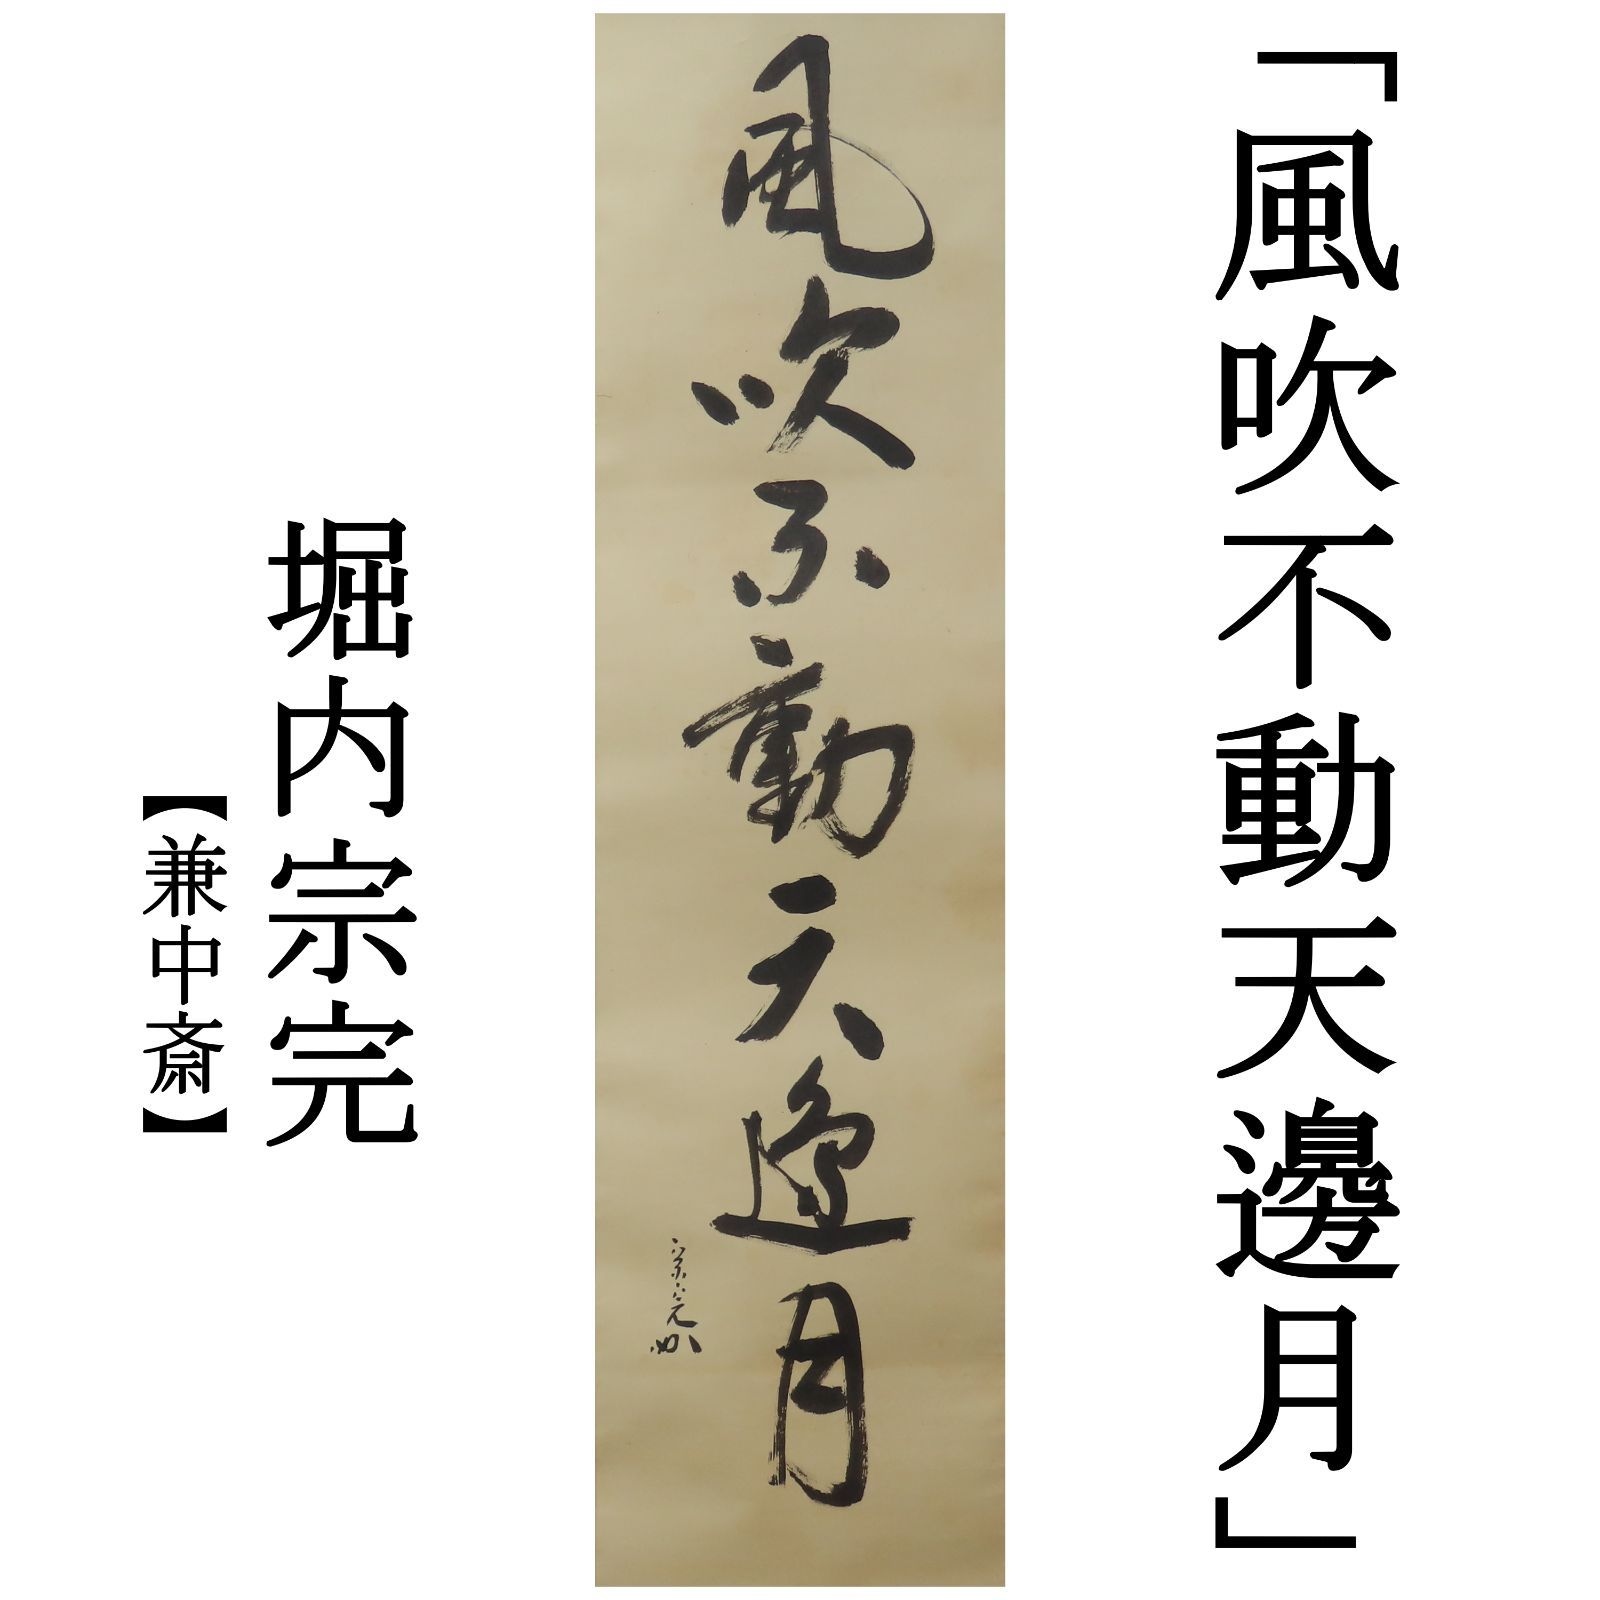 「風吹不動天邊月」
風吹不動天邊月
宗完
堀内宗完
【兼中斎】